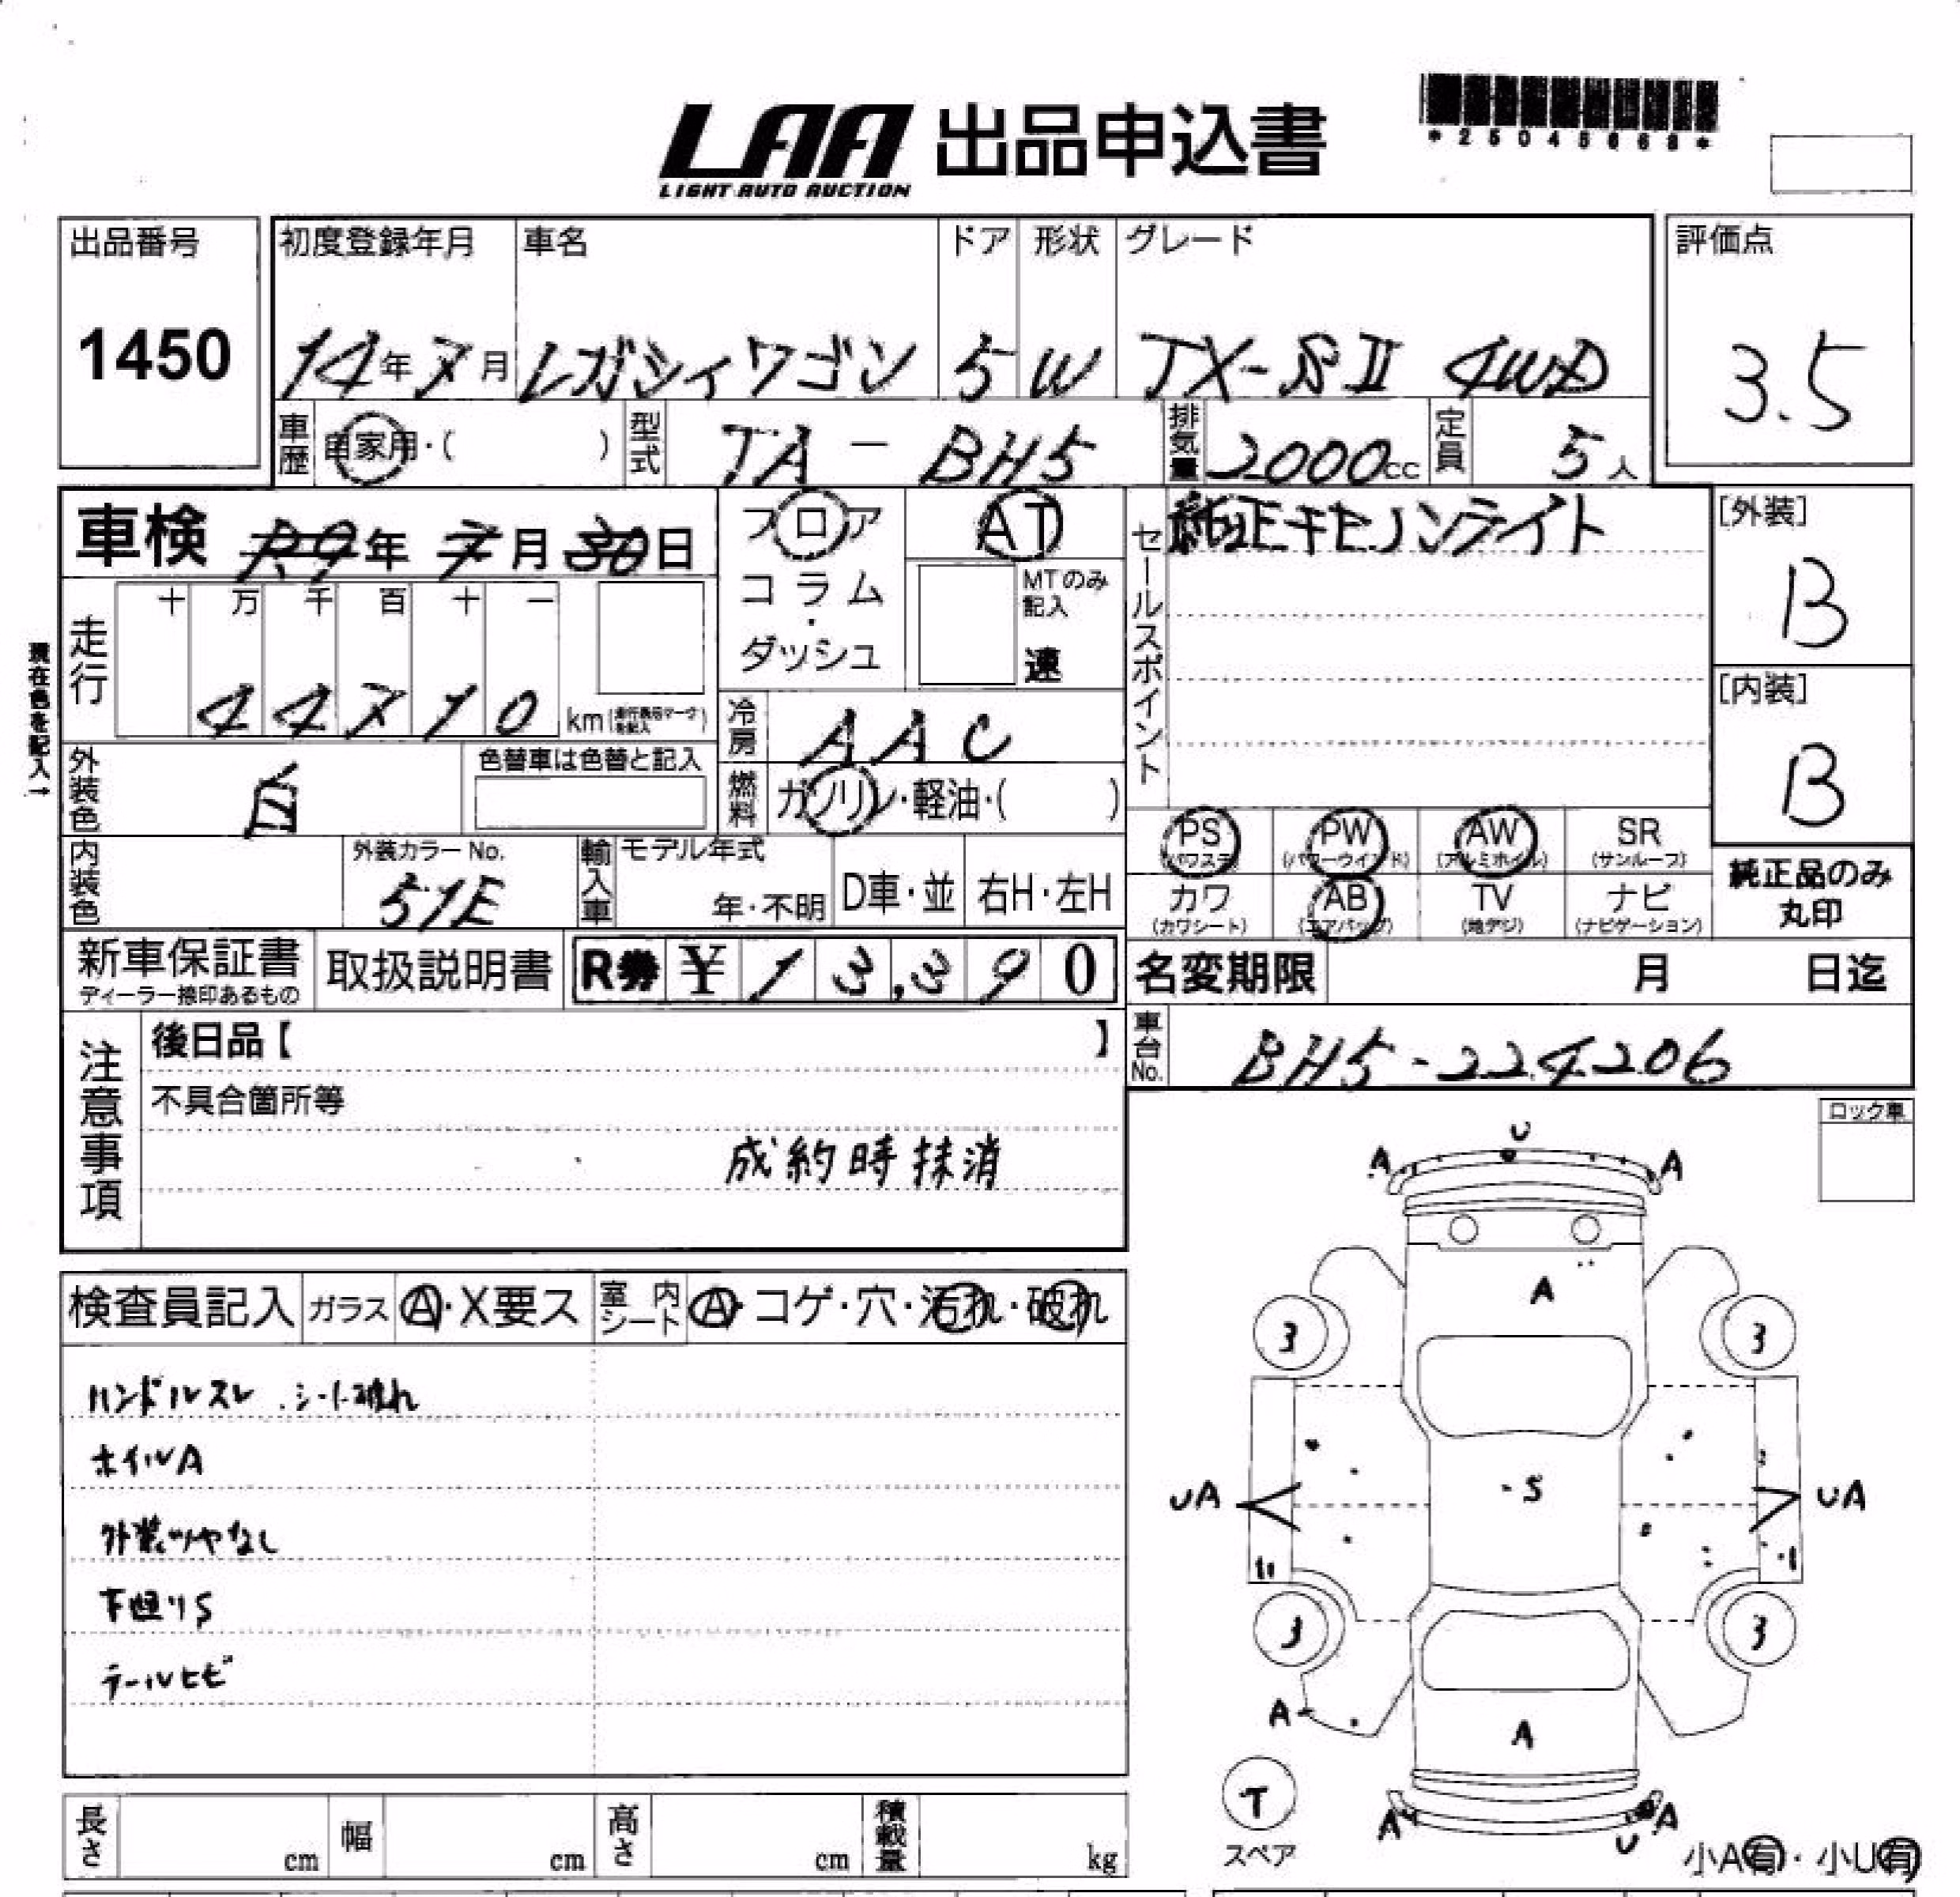 LAA 出品申込書
LIGHT AUTO AUCTION
*25045668*
出品番号
1450
初度登録年月
14年7月
車名
レガシィワゴン
ドア
5
形状
W
グレード
TX-SⅡ 4WD
評価点
3.5
車歴
自家用・( )
型式
TA-BH5
排気量
2000cc
定員
5人
車検 R9年7月30日
フロア
コラム・ダッシュ
AT
MTのみ記入
速
セールスポイント
純正キセノンライト
[外装]
B
[内装]
B
現在色を記入→
走行
十 万 千 百 十 一
44710 km
冷房
AAC
外装色
白
色替車は色替と記入
燃料
ガソリン・軽油・( )
内装色
外装カラーNo.
51E
輸入車
モデル年式
年・不明
D車・並
右H・左H
PS (パワステ)
PW (パワーウインド)
AW (アルミホイル)
SR (サンルーフ)
カワ (カワシート)
AB (エアバッグ)
TV (地デジ)
ナビ (ナビゲーション)
純正品のみ丸印
新車保証書
ディーラー捺印あるもの
取扱説明書
R券 ¥13,390
名変期限 月 日迄
車台No.
BH5-224206
注意事項
後日品【 】
不具合箇所等
成約時抹消
ロック車
検査員記入
ガラス
A・X要ス
室内シート
A・コゲ・穴・汚れ・破れ
ハンドルスレ.シート破れ
ホイルA
外装ツヤなし
下廻りS
テールヒビ
U
A A
A
3 3
S
UA UA
3 3
A
A
T
スペア
A U A
小A有・小U有
長さ cm
幅 cm
高さ cm
積載量 kg